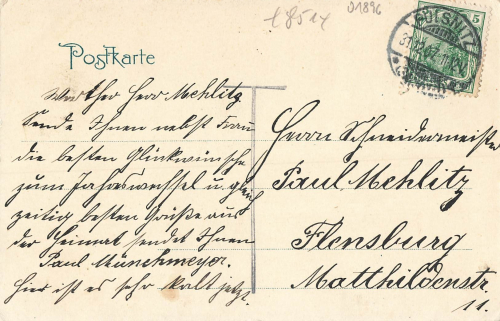 18514
D1896
PULSNITZ
31.12.07.11-12V.
5
Postkarte
Werther Herr Mehlitz
Sende Ihnen nebst Frau
die besten Glückwünsche
zum Jahreswechsel u. gleich
zeitig besten Grüße aus
der Heimat sendet Ihnen
Paul Münchmeyer.
Hier ist es sehr kalt jetzt.
Herrn Schneidermeister
Paul Mehlitz
Flensburg
Matthildenstr
11.